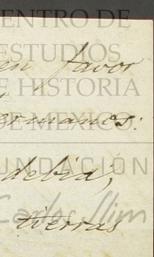 CENTRO DE
ESTUDIOS
en favor
DE HISTORIA
ermanos:
DE MEXICO
FUNDACIÓN
debia,
Carlos Slim
tierras